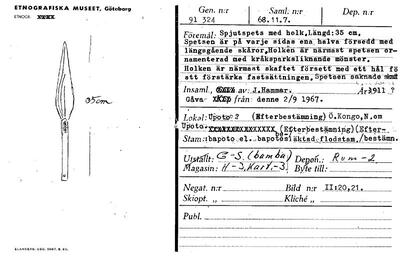 ETNOGRAFISKA MUSEET, Göteborg
ETNOGR.
35cm
Gen. n:r Saml. n:r Dep. n:r
91 324 68.11.7.
Föremål: Spjutspets med holk. Längd: 35 cm.
Spetsen är på varje sidas ena halva försedd med
längsgående skåror. Holken är närmast spetsen or-
namenterad med kråksparksliknande mönster.
Holken är närmast skaftet försett med ett hål fö
att förstärka fastsättningen. Spetsen saknade
Insaml. av: J. Hammar. År 1911 ?
Gåva från: denne 2/9 1967.
Lokal: Upoto? (Efterbestämning) Ö. Kongo, N. om
Upoto. (Efterbestämning) (Efter-
Stam: bapoto el. bapotobesläktad flodstam. /bestämn.
Utställt: G-S. (bamba) Depon.: Rum-2.
Magasin: H-3, Kart.-3. Byte till:
Negat. n:r Bild n:r II:20,21.
Skiopt. „ Kliché „
Publ.